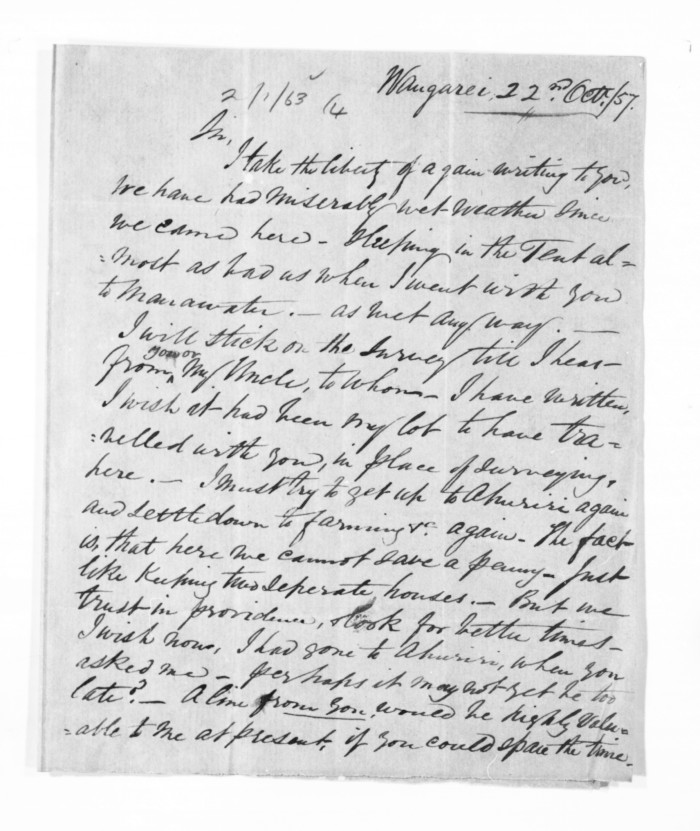 Wangarei, 22nd Octr/57.
2/1/63 14
Sir,
I take the liberty of again writing to you,
We have had miserably wet weather since
we came here - Sleeping in the Tent al=
=most as bad as when I went with you
to Manawatu. - as wet any way. -
I will stick on the Survey till I hear
from you or My Uncle, to whom - I have written,
I wish it had been my lot to have tra=
=velled with you, in place of surveying,
here. - I must try to get up to Ahuriri again
and settle down to farming &c again - The fact
is, that here we cannot save a penny - Just
like Keeping two seperate houses. - But we
trust in providence, & look for better times -
I wish now, I had gone to Ahuriri, when you
asked me - perhaps it may not yet be too
late? - A line from you, would be highly valu=
=able to me at present, if you could spare the time.